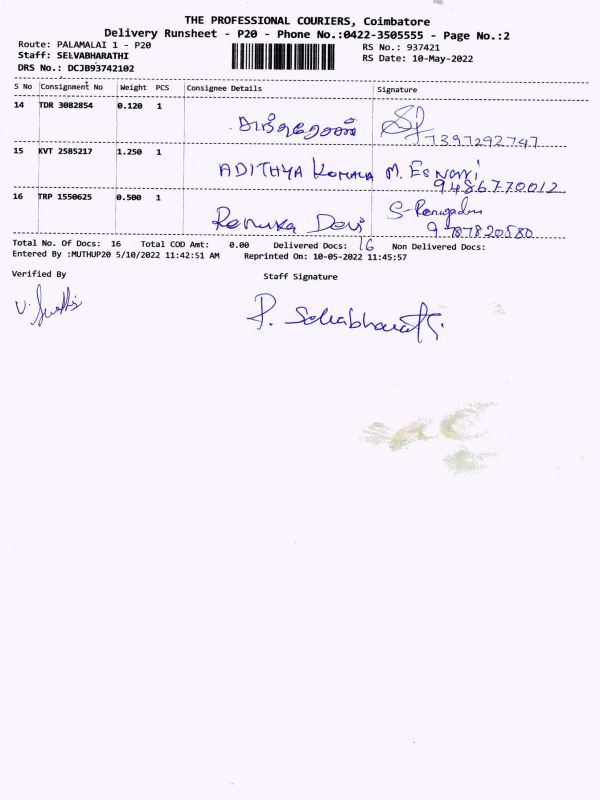 THE PROFESSIONAL COURIERS, Coimbatore
Delivery Runsheet - P20 - Phone No.:0422-3505555 - Page No.:2
Route: PALAMALAI 1 - P20
RS No.: 937421
Staff: SELVABHARATHI
RS Date: 10-May-2022
DRS No.: DCJB93742102
S No Consignment No Weight PCS Consignee Details Signature
14 TDR 3082854 0.120 1
7397292747
15 KVT 2585217 1.250 1
ADITHYA KOMALA M.
9486770012
16 TRP 1550625 0.500 1
Renuka Devi
9787820580
Total No. Of Docs: 16 Total COD Amt: 0.00 Delivered Docs: 16 Non Delivered Docs:
Entered By :MUTHUP20 5/10/2022 11:42:51 AM Reprinted On: 10-05-2022 11:45:57
Verified By Staff Signature
P. Selvabharathi